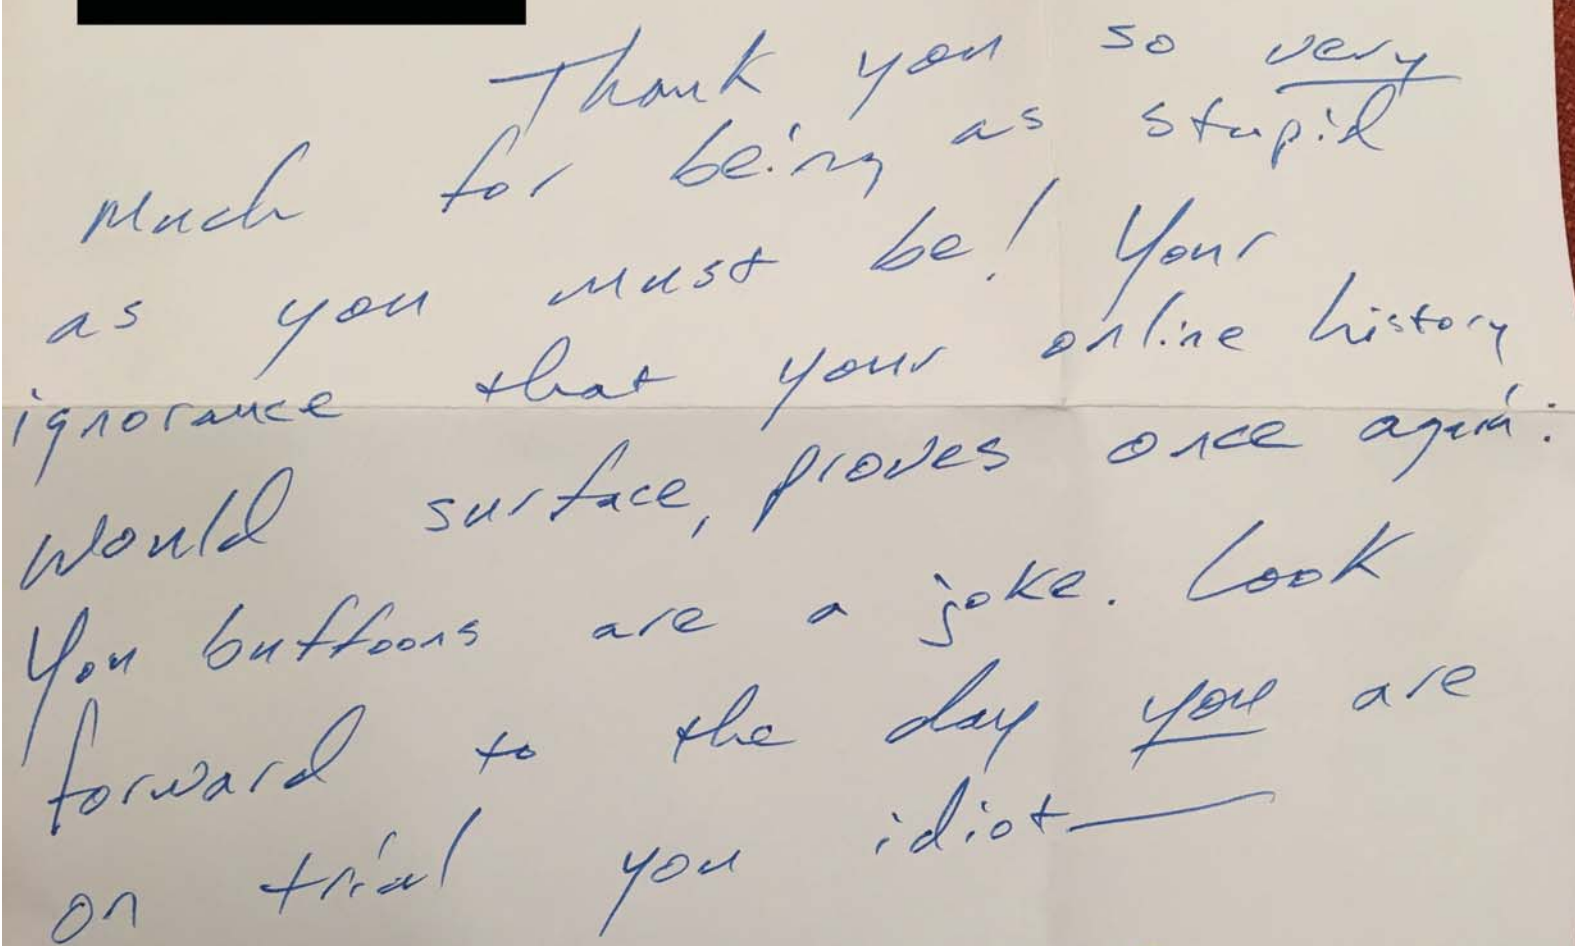 Thank you so very
much for being as stupid
as you must be! Your
ignorance that your online history
would surface, proves once again:
You buffoons are a joke. Look
forward to the day you are
on trial you idiot—